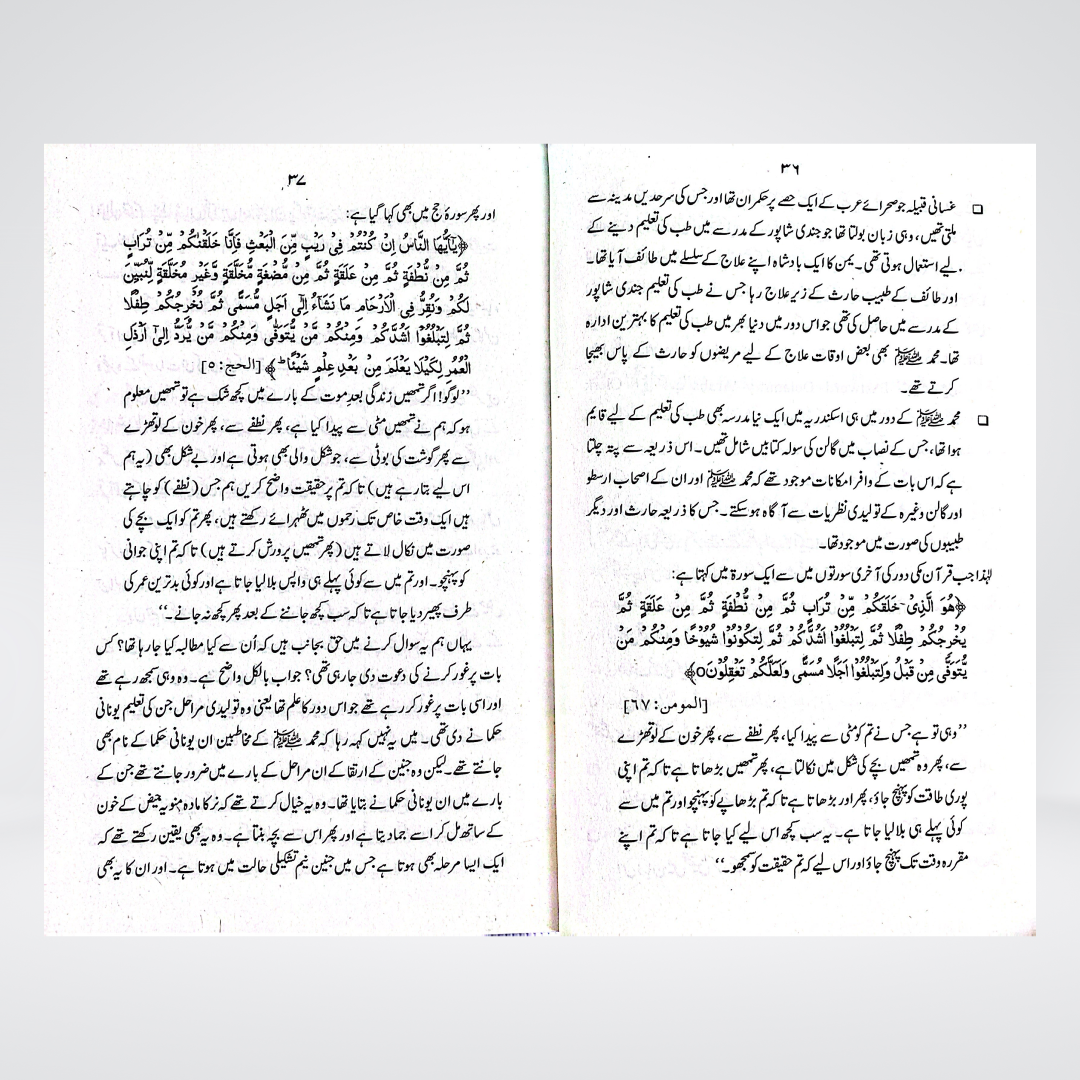 ۳۶
❑ غسانی قبیلہ جو صحرائے عرب کے ایک حصے پر حکمران تھا اور جس کی سرحدیں مدینہ سے
ملتی تھیں، وہی زبان بولتا تھا جو جندی شاپور کے مدرسے میں طب کی تعلیم دینے کے
لیے استعمال ہوتی تھی۔ یمن کا ایک بادشاہ اپنے علاج کے سلسلے میں طائف آیا تھا۔
اور طائف کے طبیب حارث کے زیر علاج رہا جس نے طب کی تعلیم جندی شاپور
کے مدرسے میں حاصل کی تھی جو اس دور میں دنیا بھر میں طب کی تعلیم کا بہترین ادارہ
تھا۔ محمد ﷺ بھی بعض اوقات علاج کے لیے مریضوں کو حارث کے پاس بھیجا
کرتے تھے۔
❑ محمد ﷺ کے دور میں ہی اسکندریہ میں ایک نیا مدرسہ بھی طب کی تعلیم کے لیے قایم
ہوا تھا، جس کے نصاب میں گالن کی سولہ کتابیں شامل تھیں۔ اس ذریعہ سے پتہ چلتا
ہے کہ اس بات کے وافر امکانات موجود تھے کہ محمد ﷺ اور ان کے اصحاب ارسطو
اور گالن وغیرہ کے تولیدی نظریات سے آگاہ ہو سکتے۔ جس کا ذریعہ حارث اور دیگر
طبیبوں کی صورت میں موجود تھا۔
لہٰذا جب قرآن مکی دور کی آخری سورتوں میں سے ایک سورۃ میں کہتا ہے:
﴿هُوَ الَّذِیْ خَلَقَكُمْ مِّنْ تُرَابٍ ثُمَّ مِنْ نُّطْفَةٍ ثُمَّ مِنْ عَلَقَةٍ ثُمَّ
یُخْرِجُكُمْ طِفْلًا ثُمَّ لِتَبْلُغُوْا اَشُدَّكُمْ ثُمَّ لِتَكُوْنُوْا شُیُوْخًا وَمِنْكُمْ مَنْ
یُّتَوَفّٰی مِنْ قَبْلُ وَلِتَبْلُغُوْا اَجَلًا مُسَمًّی وَلَعَلَّكُمْ تَعْقِلُوْنَO﴾
[المومن: ۶۷]
’’وہی تو ہے جس نے تم کو مٹی سے پیدا کیا، پھر نطفے سے، پھر خون کے لوتھڑے
سے، پھر وہ تمھیں بچے کی شکل میں نکالتا ہے، پھر تمھیں بڑھاتا ہے تا کہ تم اپنی
پوری طاقت کو پہنچ جاؤ، پھر اور بڑھاتا ہے تا کہ تم بڑھاپے کو پہنچو اور تم میں سے
کوئی پہلے ہی بلا لیا جاتا ہے۔ یہ سب کچھ اس لیے کیا جاتا ہے تا کہ تم اپنے
مقررہ وقت تک پہنچ جاؤ اور اس لیے کہ تم حقیقت کو سمجھو۔‘‘
۳۷
اور پھر سورۂ حج میں بھی کہا گیا ہے:
﴿یٰٓاَیُّهَا النَّاسُ اِنْ كُنْتُمْ فِیْ رَیْبٍ مِّنَ الْبَعْثِ فَاِنَّا خَلَقْنٰكُمْ مِّنْ تُرَابٍ
ثُمَّ مِنْ نُّطْفَةٍ ثُمَّ مِنْ عَلَقَةٍ ثُمَّ مِنْ مُّضْغَةٍ مُّخَلَّقَةٍ وَّغَیْرِ مُخَلَّقَةٍ لِّنُبَیِّنَ
لَكُمْ وَنُقِرُّ فِی الْاَرْحَامِ مَا نَشَآءُ اِلٰٓی اَجَلٍ مُّسَمًّی ثُمَّ نُخْرِجُكُمْ طِفْلًا
ثُمَّ لِتَبْلُغُوْا اَشُدَّكُمْ وَمِنْكُمْ مَّنْ یُّتَوَفّٰی وَمِنْكُمْ مَّنْ یُّرَدُّ اِلٰٓی اَرْذَلِ
الْعُمُرِ لِكَیْلَا یَعْلَمَ مِنْ بَعْدِ عِلْمٍ شَیْئًا ط﴾ [الحج: ۵]
’’لوگو! اگر تمھیں زندگی بعد موت کے بارے میں کچھ شک ہے تو تمھیں معلوم
ہو کہ ہم نے تمھیں مٹی سے پیدا کیا ہے، پھر نطفے سے، پھر خون کے لوتھڑے
سے پھر گوشت کی بوٹی سے، جو شکل والی بھی ہوتی ہے اور بے شکل بھی (یہ ہم
اس لیے بتا رہے ہیں) تا کہ تم پر حقیقت واضح کریں ہم جس (نطفے) کو چاہتے
ہیں ایک وقت خاص تک رحموں میں ٹھہرائے رکھتے ہیں، پھر تم کو ایک بچے کی
صورت میں نکال لاتے ہیں (پھر تمھیں پرورش کرتے ہیں) تا کہ تم اپنی جوانی
کو پہنچو۔ اور تم میں سے کوئی پہلے ہی واپس بلا لیا جاتا ہے اور کوئی بدترین عمر کی
طرف پھیر دیا جاتا ہے تا کہ سب کچھ جاننے کے بعد پھر کچھ نہ جانے۔‘‘
یہاں ہم یہ سوال کرنے میں حق بجانب ہیں کہ اُن سے کیا مطالبہ کیا جا رہا تھا؟ کس
بات پر غور کرنے کی دعوت دی جا رہی تھی؟ جواب بالکل واضح ہے۔ وہ وہی سمجھ رہے تھے
اور اسی بات پر غور کر رہے تھے جو اس دور کا علم تھا یعنی وہ تولیدی مراحل جن کی تعلیم یونانی
حکما نے دی تھی۔ میں یہ نہیں کہہ رہا کہ محمد ﷺ کے مخاطبین ان یونانی حکما کے نام بھی
جانتے تھے۔ لیکن وہ جنین کے ارتقا کے ان مراحل کے بارے میں ضرور جانتے تھے جن کے
بارے میں ان یونانی حکما نے بتایا تھا۔ وہ یہ خیال کرتے تھے کہ نر کا مادہ منویہ حیض کے خون
کے ساتھ مل کر اسے جما دیتا ہے اور پھر اس سے بچہ بنتا ہے۔ وہ یہ بھی یقین رکھتے تھے کہ
ایک ایسا مرحلہ بھی ہوتا ہے جس میں جنین نیم تشکیلی حالت میں ہوتا ہے۔ اور ان کا یہ بھی